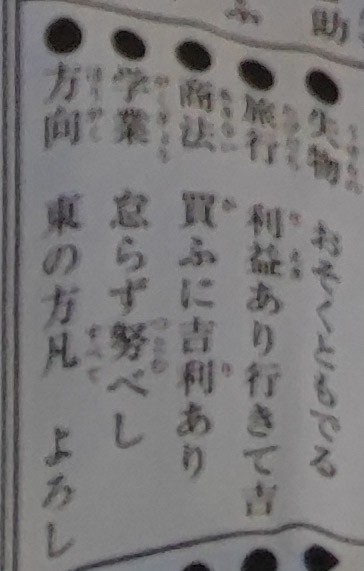 助
ふ
●失物 おそくともでる
●旅行 利益あり行きて吉
●商法 買ふに吉利あり
●学業 怠らず努べし
●方向 東の方凡 よろし